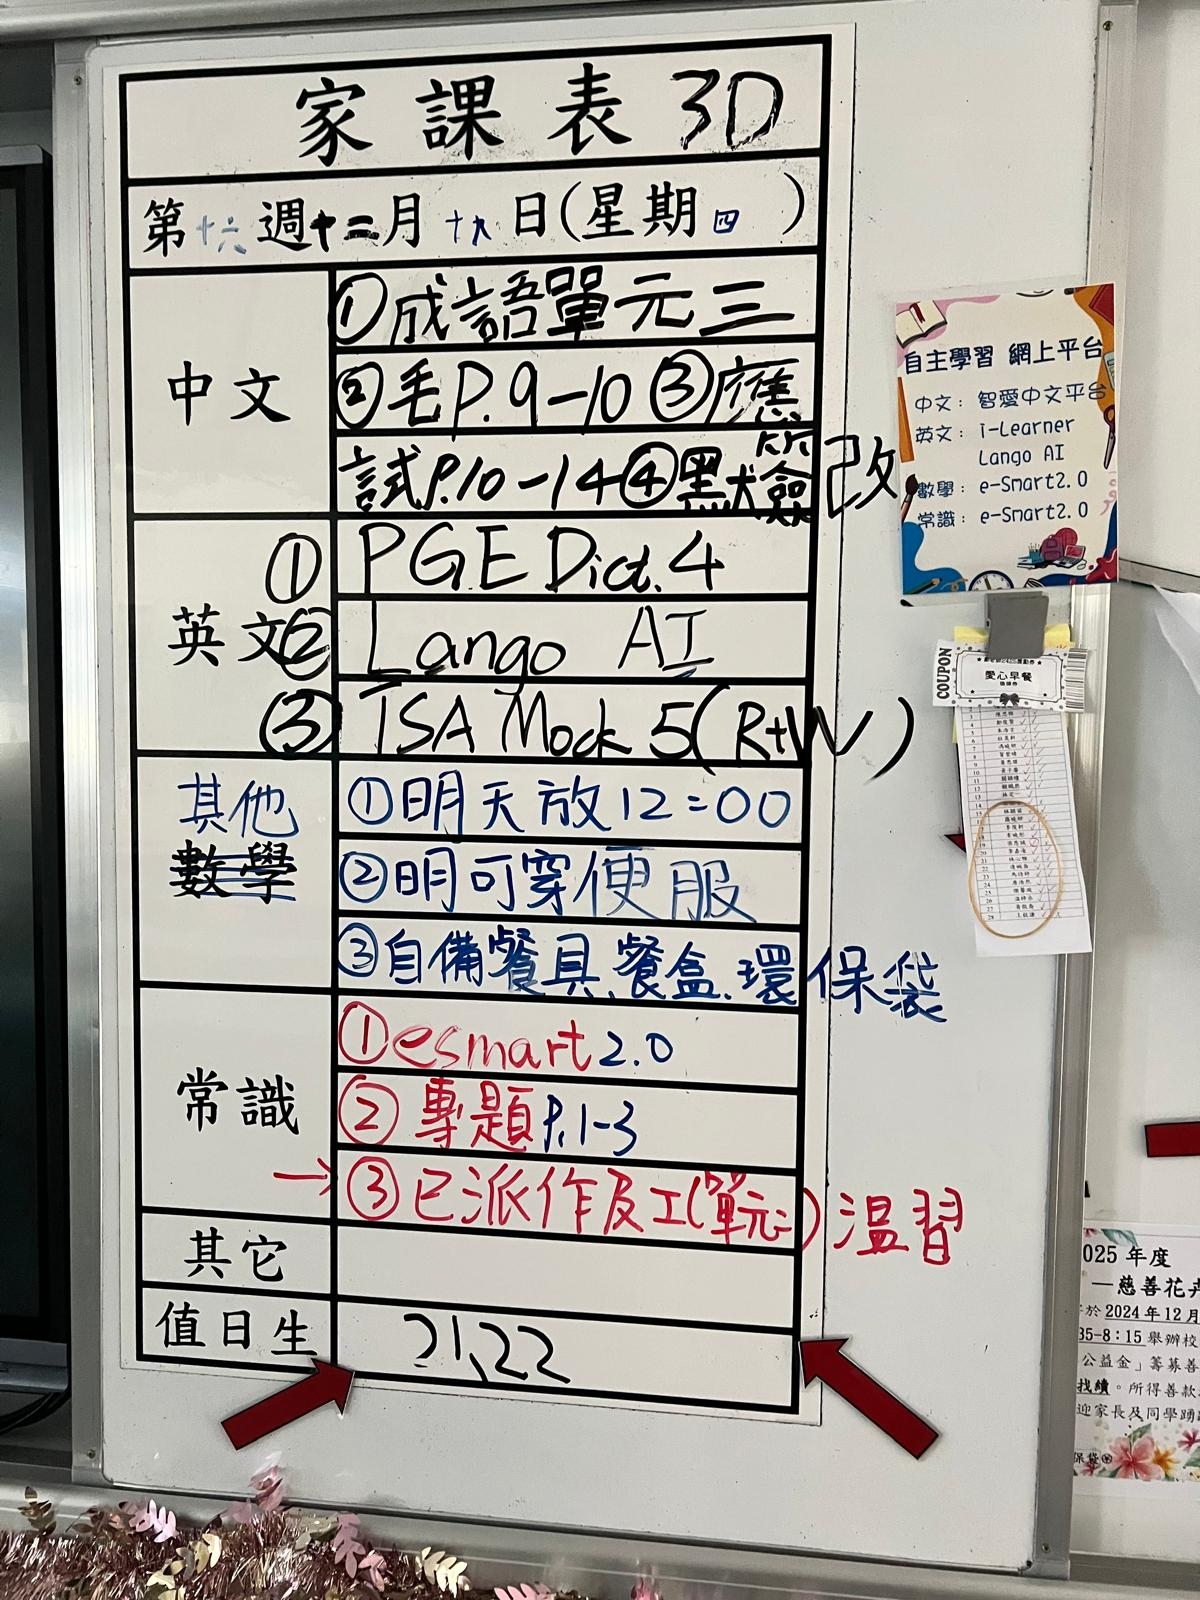 家課表 3D
第十六週十二月十九日(星期四)
中文
①成語單元三
②毛P.9-10 ③應
試P.10-14④默簽改
英文
① PGE Dict.4
② Lango AI
③ TSA Mock 5(R+W)
其他
數學
①明天放12:00
②明可穿便服
③自備餐具、餐盒、環保袋
常識
①esmart2.0
②專題P.1-3
→③已派作及工(單元二)溫習
其它
值日生
21、22
自主學習 網上平台
中文：智愛中文平台
英文：i-Learner
Lango AI
數學：e-Smart2.0
常識：e-Smart2.0
COUPON
愛心早餐
025 年度
—慈善花卉
於 2024 年 12 月
35-8：15 舉辦校
公益金」籌募善
找續。所得善款
迎家長及同學踴